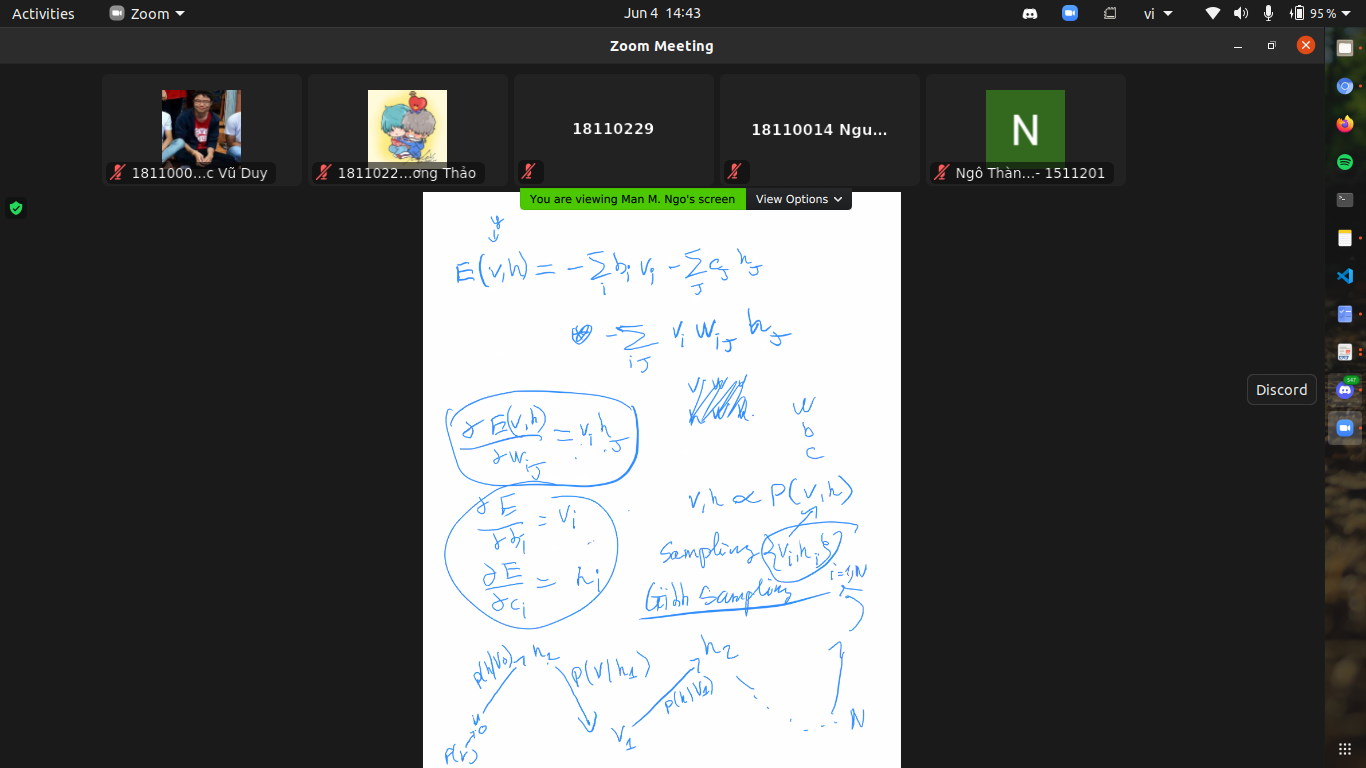 Activities Zoom Jun 4 14:43 vi 95%
Zoom Meeting
1811000...c Vũ Duy
1811022...ơng Thảo
18110229
18110014 Ngu...
N
Ngô Thàn...- 1511201
You are viewing Man M. Ngo's screen View Options
E(v,h) = - Σ_i b_i v_i - Σ_J c_J h_J
- Σ_iJ v_i W_iJ h_J
∂E(v,h)/∂w_iJ = v_i h_J
W
b
c
∂E/∂b_i = v_i
v,h ∝ P(v,h)
∂E/∂c_i = h_i
Sampling {v_i,h_i} i=1,N
Gibb Sampling
p(h|v_0) h_1 P(V|h_1) h_2
v_0 p(h|V_1)
V_1 N
P(v)
547
Discord